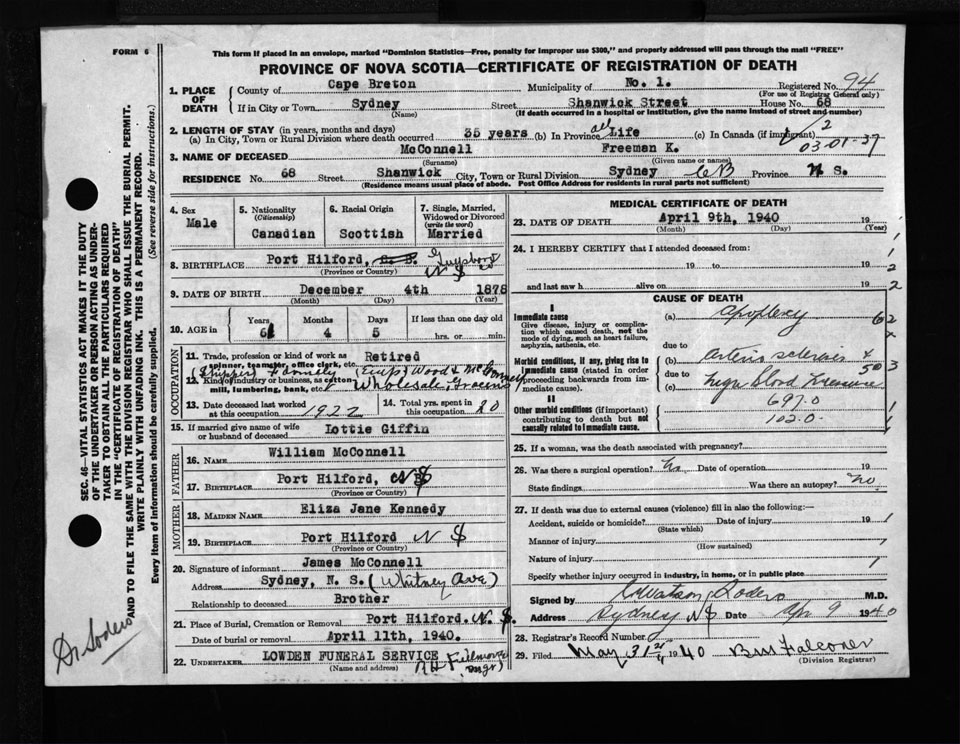 FORM 6
This form if placed in an envelope, marked "Dominion Statistics—Free, penalty for improper use $300," and properly addressed will pass through the mail "FREE"
PROVINCE OF NOVA SCOTIA—CERTIFICATE OF REGISTRATION OF DEATH
1. PLACE OF DEATH County of Cape Breton Municipality of No. 1. Registered No. 94
(For use of Registrar General only)
If in City or Town Sydney Street Shanwick Street House No. 68
(Name) (If death occurred in a hospital or institution, give the name instead of street and number)
2. LENGTH OF STAY (in years, months and days)
(a) In City, Town or Rural Division where death occurred 35 years (b) In Province all Life (c) In Canada (if immigrant) 2
03-01-37
3. NAME OF DECEASED McConnell Freeman K.
(Surname) (Given name or names)
RESIDENCE No. 68 Street Shanwick City, Town or Rural Division Sydney CB Province N S.
(Residence means usual place of abode. Post Office Address for residents in rural parts not sufficient)
4. Sex Male
5. Nationality (Citizenship) Canadian
6. Racial Origin Scottish
7. Single, Married, Widowed or Divorced (write the word) Married
8. BIRTHPLACE Port Hilford, N S
(Province or Country)
9. DATE OF BIRTH December 4th 1878
(Month) (Day) (Year)
10. AGE in Years 61 Months 4 Days 5 If less than one day old hrs. or min.
OCCUPATION
11. Trade, profession or kind of work as spinner, teamster, office clerk, etc. Retired
12. Kind of industry or business, as cotton mill, lumbering, bank, etc. Wood & McConnell Wholesale Groceries
13. Date deceased last worked at this occupation 1922 14. Total yrs. spent in this occupation 20
15. If married give name of wife or husband of deceased Lottie Giffin
FATHER
16. NAME William McConnell
17. BIRTHPLACE Port Hilford, N S
(Province or Country)
MOTHER
18. MAIDEN NAME Eliza Jane Kennedy
19. BIRTHPLACE Port Hilford N S
(Province or Country)
20. Signature of informant James McConnell
Address Sydney, N. S. (Whitney Ave)
Relationship to deceased Brother
21. Place of Burial, Cremation or Removal Port Hilford. N. S.
Date of burial or removal April 11th, 1940.
22. UNDERTAKER LOWDEN FUNERAL SERVICE
(Name and address)
MEDICAL CERTIFICATE OF DEATH
23. DATE OF DEATH April 9th, 1940 19
(Month) (Day) (Year)
24. I HEREBY CERTIFY that I attended deceased from:
19 to 19
and last saw h alive on 19
CAUSE OF DEATH
I
Immediate cause (a) Apoplexy
Give disease, injury or complication which caused death, not the mode of dying, such as heart failure, asphyxia, asthenia, etc.
due to
Morbid conditions, if any, giving rise to immediate cause (stated in order proceeding backwards from immediate cause). (b) arterio sclerosis &
due to
(c) high Blood Pressure
II
Other morbid conditions (if important) contributing to death but not causally related to immediate cause.
697.0
102.0
25. If a woman, was the death associated with pregnancy?
26. Was there a surgical operation? no Date of operation 19
State findings Was there an autopsy? no
27. If death was due to external causes (violence) fill in also the following:—
Accident, suicide or homicide? Date of injury 19
(State which)
Manner of injury
(How sustained)
Nature of injury
Specify whether injury occurred in industry, in home, or in public place
Signed by M.D.
Address Sydney NS Date Apr 9 1940
28. Registrar's Record Number
29. Filed May 31st 1940 Falconer
(Division Registrar)
SEC. 46—VITAL STATISTICS ACT MAKES IT THE DUTY
OF THE UNDERTAKER OR PERSON ACTING AS UNDERTAKER TO OBTAIN ALL THE PARTICULARS REQUIRED
IN THE "CERTIFICATE OF REGISTRATION OF DEATH"
AND TO FILE THE SAME WITH THE DIVISION REGISTRAR WHO SHALL ISSUE THE BURIAL PERMIT.
WRITE PLAINLY WITH UNFADING INK. THIS IS A PERMANENT RECORD.
Every item of information should be carefully supplied. (See reverse side for instructions.)
Dr Soders